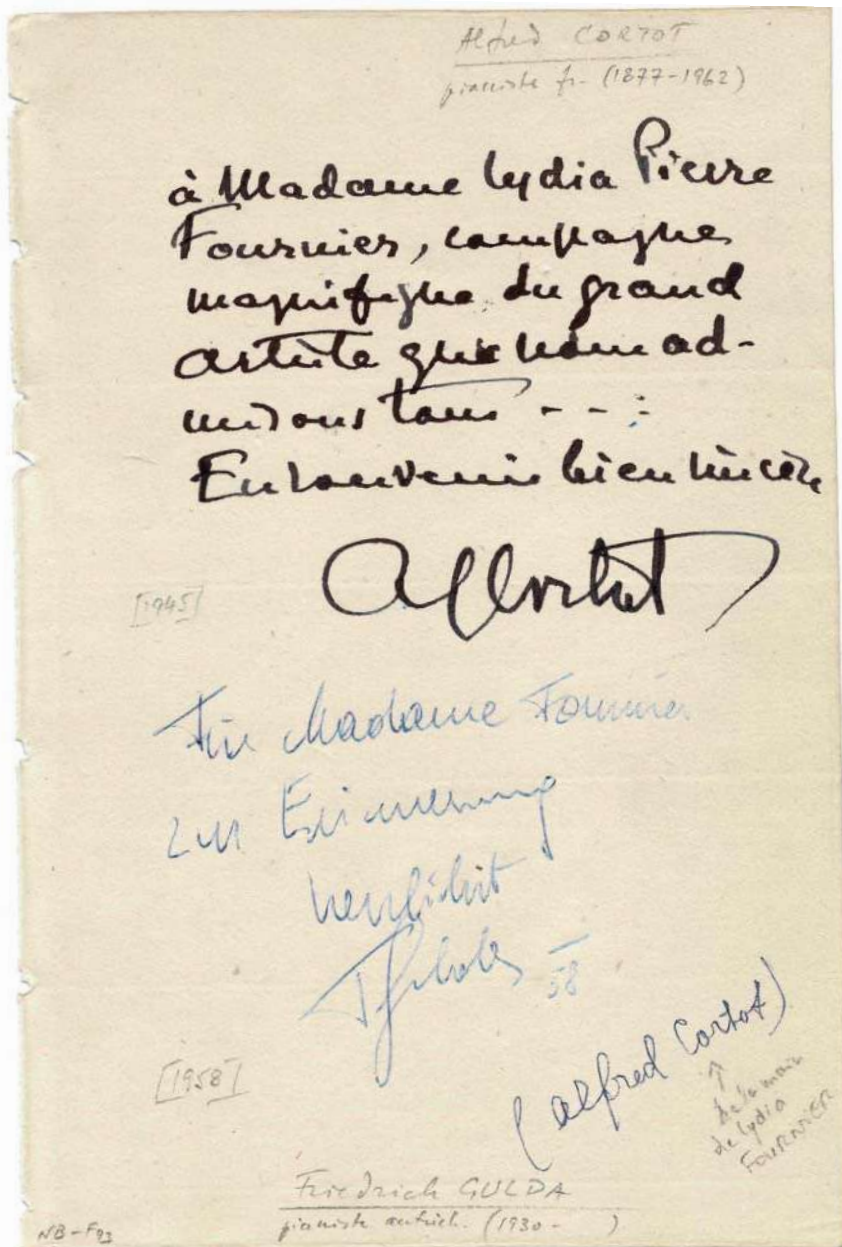 Alfred CORTOT
pianiste fr. (1877-1962)
à Madame Lydia Pierre
Fournier, compagne
magnifique du grand
artiste que nous ad-
mirons tous - - :
En souvenir bien sincère
[1945]
Für Madame Fournier
zur Erinnerung
herzlichst
58
[1958]
(Alfred Cortot)
↑
de la main
de Lydia
FOURNIER
Friedrich GULDA
pianiste autrich. (1930- )
NB-F93